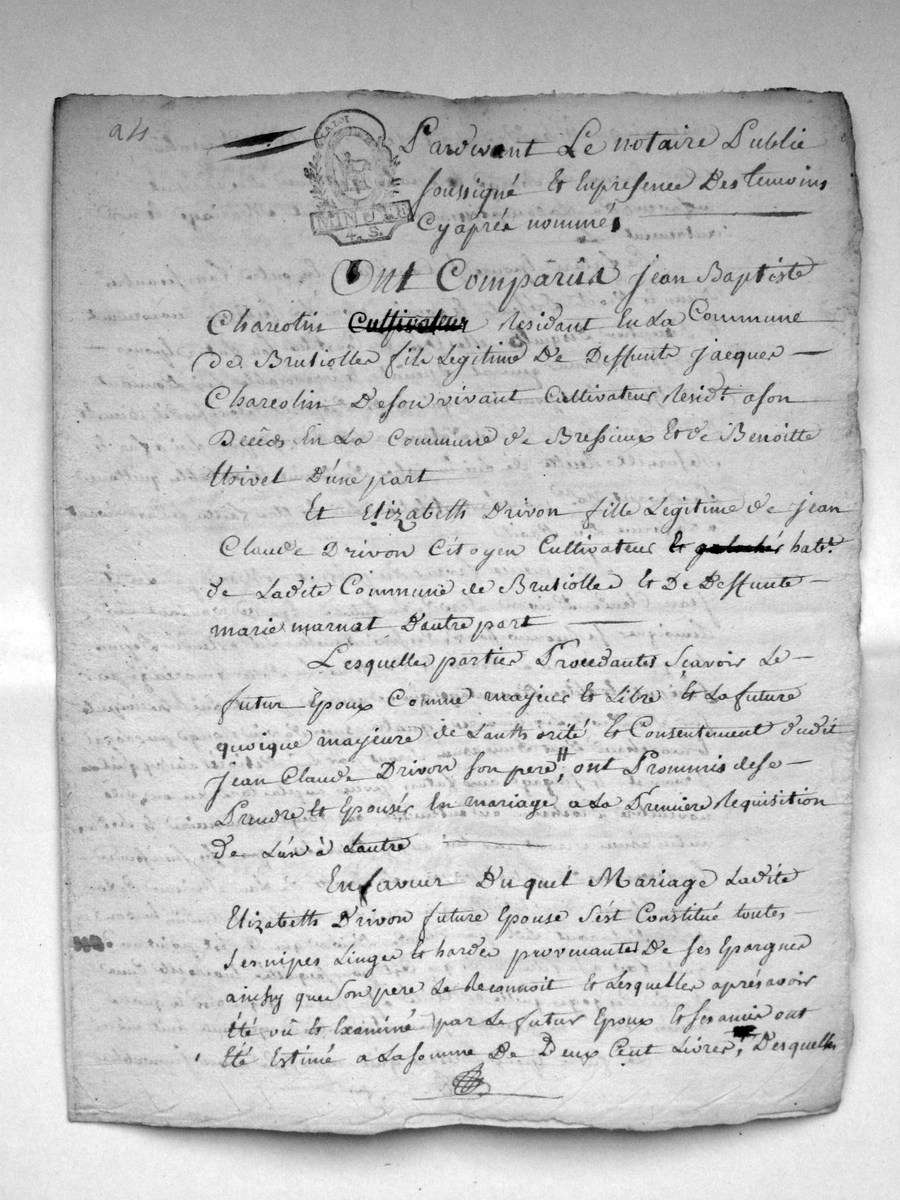 24
MINUTE
4. S.
Pardevant Le notaire Public
soussigné Et En presence Des temoins
Cy aprés nommés
Ont Comparûs Jean Baptiste
Charcotin Cultivateur Residant En La Commune
de Brusiolles fils Legitime De Deffunts Jacques
Charcotin De son vivant Cultivateur Resid.t a son
Décéds En La Commune de Bressieux Et de Benoitte
thivel D'une part
Et Elizabeth Drivon fille Legitime de Jean
Claude Drivon Citoyen Cultivateur Et hab.t
de Ladite Commune de Brusiolles Et De Deffunte
marie marnat D'autre part
Lesquelles parties Procedantes Scavoir Le
futur Epoux Comme majeur Et Libre Et La future
quoique majeure de L'authorité Et Consentement dudit
Jean Claude Drivon son pere, ont Prommis de se
Prendre Et Epouser En mariage a La Premiere Requisition
de L'un à L'autre
En faveur Duquel Mariage Ladite
Elizabeth Drivon future Epouse s'est Constitué toutes
ses nipes Linges Et hardes provenantes De ses Epargnes
ainsy que son pere Le Reconnoit Et Lesquelles aprés avoir
Eté vû Et Examiné par Le futur Epoux Et ses amis ont
Eté Estimé a La somme De Deux Cent Livres, Desquelles